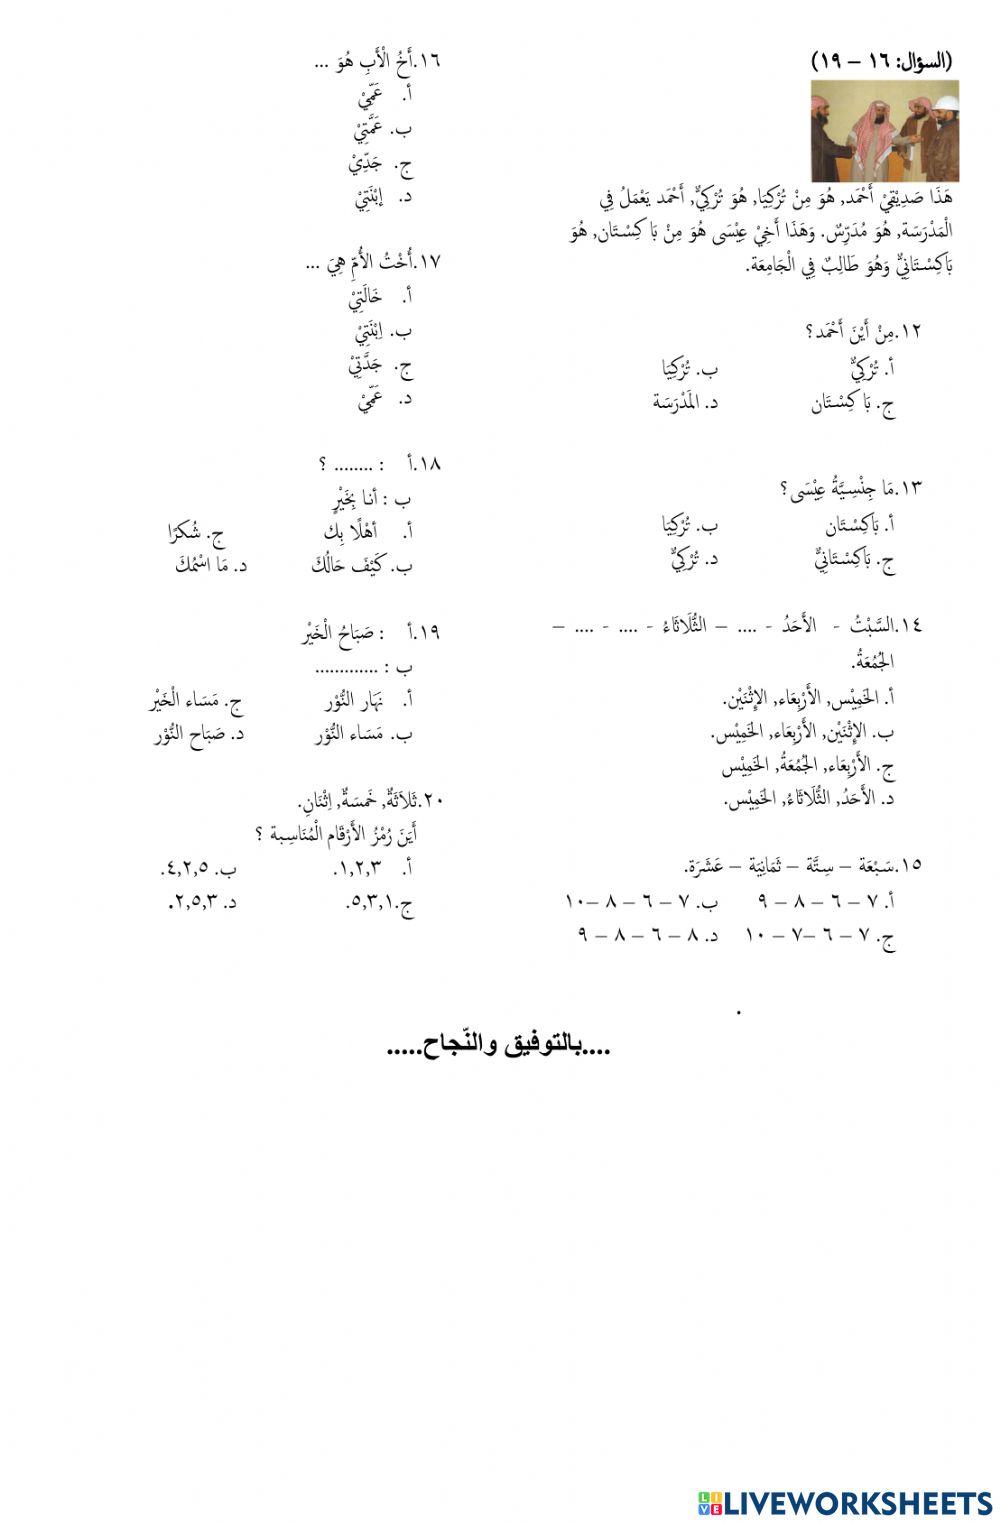 (السؤال: ١٦ – ١٩)
هَذَا صَدِيْقِيْ أَحْمَد, هُوَ مِنْ تُرْكِيَا, هُوَ تُرْكِيٌّ, أَحْمَد يَعْمَلُ فِي
الْمَدْرَسَة, هُوَ مُدَرِّسٌ. وَهَذَا أَخِيْ عِيْسَى هُوَ مِنْ بَاكِسْتَان, هُوَ
بَاكِسْتَانِيٌّ وَهُوَ طَالِبٌ فِي الْجَامِعَة.
١٢.مِنْ أَيْنَ أَحْمَد؟
أ. تُرْكِيٌّ ب. تُرْكِيَا
ج. بَاكِسْتَان د. المَدْرَسَة
١٣.مَا جِنْسِيَّةُ عِيْسَى؟
أ. بَاكِسْتَان ب. تُرْكِيَا
ج. بَاكِسْتَانِيٌّ د. تُرْكِيٌّ
١٤.السَّبْتُ - الأَحَدُ - .... – الثُّلَاثَاءُ - .... - .... –
الجُمُعَةُ.
أ. الخَمِيْس, الأَرْبِعَاء, الإِثْنَيْن.
ب. الإِثْنَيْن, الأَرْبِعَاء, الخَمِيْس.
ج. الأَرْبِعَاء, الجُمُعَةُ, الخَمِيْس
د. الأَحَدُ, الثُّلَاثَاءُ, الخَمِيْس.
١٥.سَبْعَة – سِتَّة – ثَمَانِيَة – عَشَرَة.
أ. ٧ – ٦ – ٨ – ٩ ب. ٧ – ٦ – ٨ –١٠
ج. ٧ – ٦ –٧ – ١٠ د. ٨ – ٦ – ٨ – ٩
١٦.أَخُ الْأَبِ هُوَ ...
أ. عَمِّيْ
ب. عَمَّتِيْ
ج. جَدِّيْ
د. إِبْنَتِيْ
١٧.أُخْتُ الأُمِّ هِيَ ...
أ. خَالَتِيْ
ب. اِبْنَتِيْ
ج. جَدَّتِيْ
د. عَمِّيْ
١٨.أ : ........ ؟
ب : أنا بِخَيْرٍ
أ. أَهْلًا بِك ج. شُكرًا
ب. كَيْفَ حَالُكَ د. مَا اسْمُكَ
١٩.أ : صَبَاحُ الْخَيْر
ب : .............
أ. نَهَار النُّوْر ج. مَسَاء الْخَيْر
ب. مَسَاء النُّوْر د. صَبَاح النُّوْر
٢٠.ثَلاَثَةٌ, خَمسَةٌ, اِثْنَانِ.
أَيَنَ رُمْزُ الأَرْقَام الْمُنَاسِبة ؟
أ. ١,٢,٣. ب. ٤,٢,٥.
ج.٥,٣,١. د. ٢,٥,٣.
....بالتوفيق والنّجاح.....
LIVEWORKSHEETS